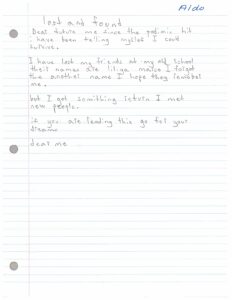 Aldo
lost and found
Dear future me since the pademic hit
i have been telling myself I could
survive.
I have lost my friends at my old school
their names are litiya maice I forgot
the another name I hope they
me.
but I got somithing return I met
new people.
if you are reading this go for your
dreams
dear me